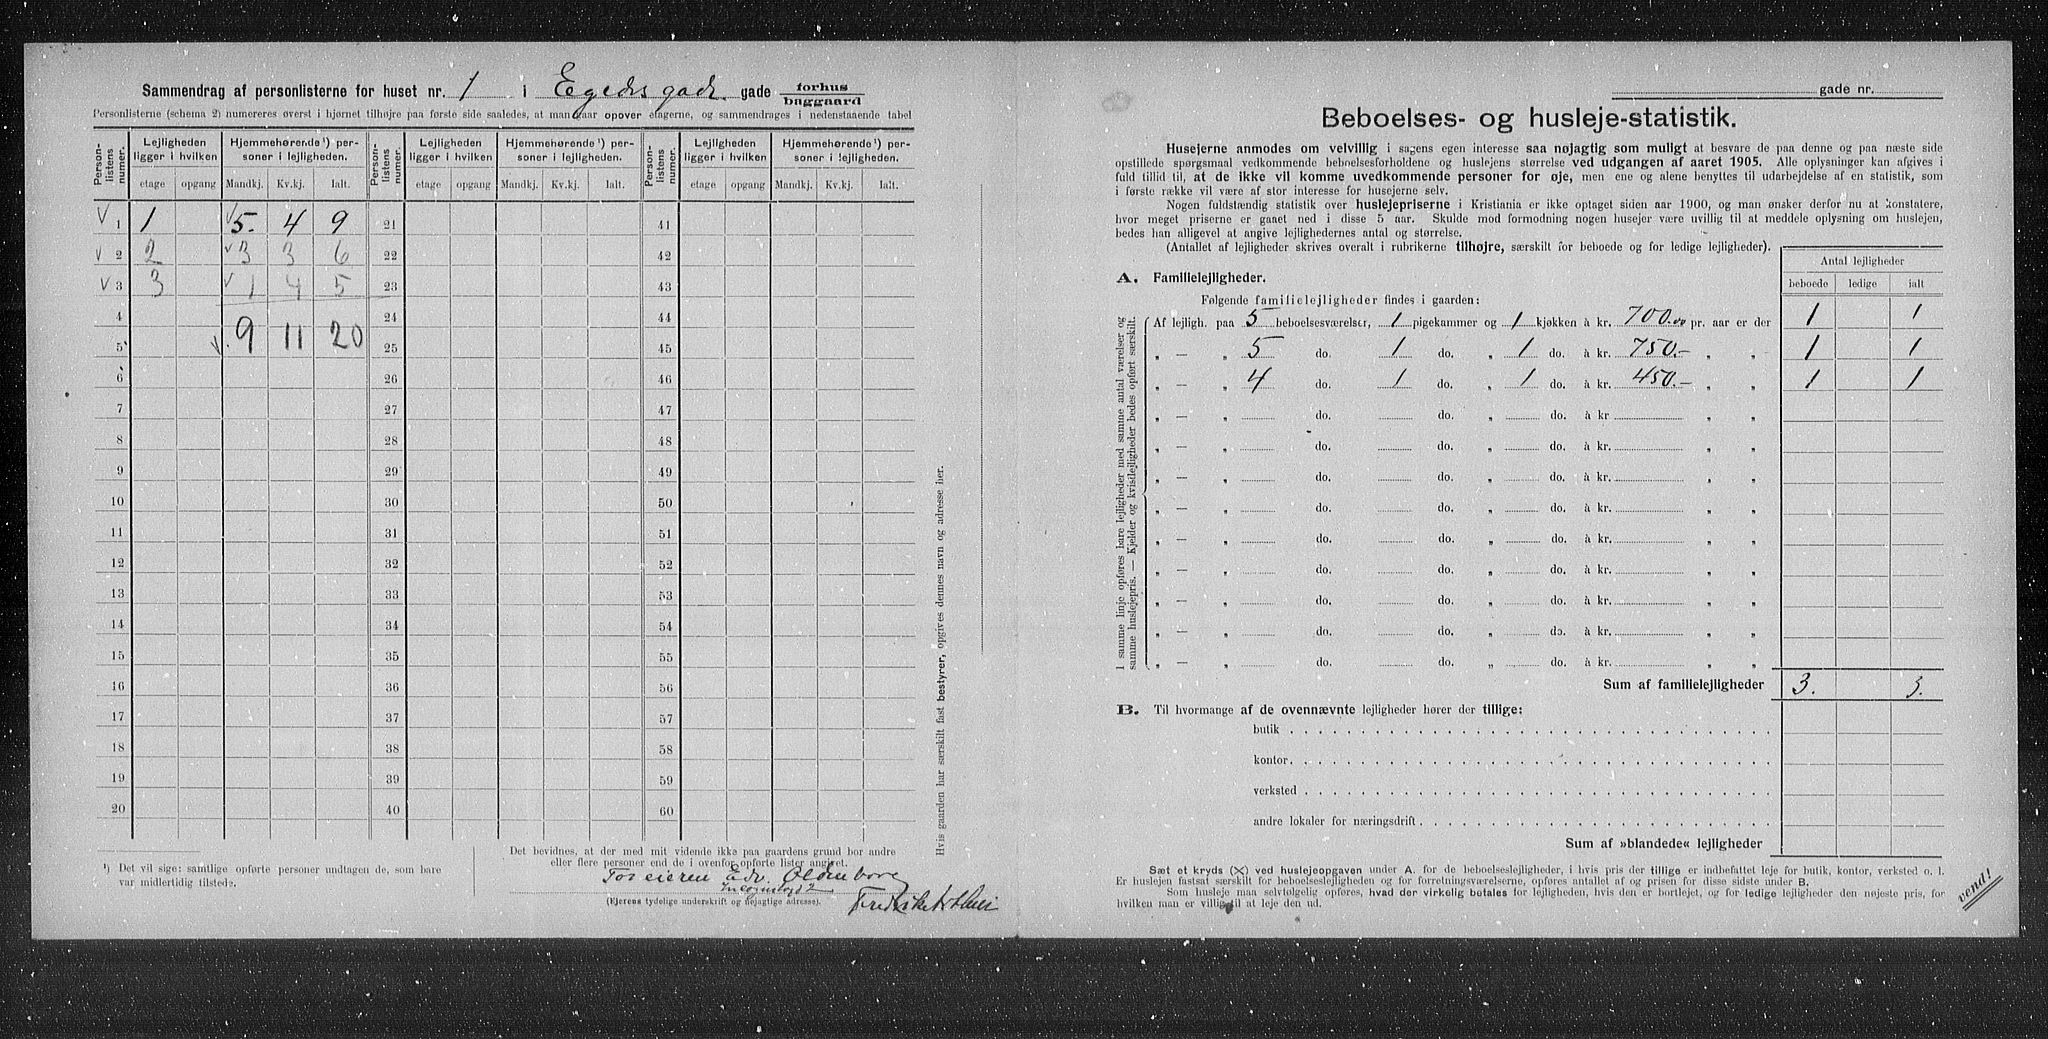 Sammendrag af personlisterne for huset nr. 1 i Egedes gade. gade forhus baggaard
Personlisterne (schema 2) numereres øverst i hjørnet tilhøjre paa første side saaledes, at man gaar opover etagerne, og sammendrages i nedenstaaende tabel
Person-listens numer. Lejligheden ligger i hvilken Hjemmehørende ¹) personer i lejligheden. Person-listens numer. Lejligheden ligger i hvilken Hjemmehørende ¹) personer i lejligheden. Person-listens numer. Lejligheden ligger i hvilken Hjemmehørende ¹) personer i lejligheden.
etage opgang Mandkj. Kv.kj. Ialt. etage opgang Mandkj. Kv.kj. Ialt. etage opgang Mandkj. Kv.kj. Ialt.
V 1 1 V 5. 4 9 21 41
V 2 2 V 3 3 6 22 42
V 3 3 V 1 4 5 23 43
4 24 44
5 V 9 11 20 25 45
6 26 46
7 27 47
8 28 48
9 29 49
10 30 50
11 31 51
12 32 52
13 33 53
14 34 54
15 35 55
16 36 56
17 37 57
18 38 58
19 39 59
20 40 60
Hvis gaarden har særskilt fast bestyrer, opgives dennes navn og adresse her.
¹) Det vil sige: samtlige opførte personer undtagen de, som bare
var midlertidig tilstede.
Det bevidnes, at der med mit vidende ikke paa gaardens grund bor andre
eller flere personer end de i ovenfor opførte lister angivet.
Edv. Oldenborg
(Ejerens tydelige underskrift og nøjagtige adresse).
gade nr.
Beboelses- og husleje-statistik.
Husejerne anmodes om velvillig i sagens egen interesse saa nøjagtig som muligt at besvare de paa denne og paa næste side
opstillede spørgsmaal vedkommende beboelsesforholdene og huslejens størrelse ved udgangen af aaret 1905. Alle oplysninger kan afgives i
fuld tillid til, at de ikke vil komme uvedkommende personer for øje, men ene og alene benyttes til udarbejdelse af en statistik, som
i første række vil være af stor interesse for husejerne selv.
Nogen fuldstændig statistik over huslejepriserne i Kristiania er ikke optaget siden aar 1900, og man ønsker derfor nu at konstatere,
hvor meget priserne er gaaet ned i disse 5 aar. Skulde mod formodning nogen husejer være uvillig til at meddele oplysning om huslejen,
bedes han alligevel at angive lejlighedernes antal og størrelse.
(Antallet af lejligheder skrives overalt i rubrikerne tilhøjre, særskilt for beboede og for ledige lejligheder).
Antal lejligheder
beboede ledige ialt
A. Familielejligheder.
Følgende familielejligheder findes i gaarden:
1 samme linje opføres bare lejligheder med samme antal værelser og
samme huslejepris. — Kjelder og kvistlejligheder bedes opført særskilt.
Af lejligh. paa 5 beboelsesværelser, 1 pigekammer og 1 kjøkken à kr. 700.00 pr. aar er der 1 1
„ — „ 5 do. 1 do. „ 1 do. à kr. 750.— „ „ 1 1
„ — „ 4 do. 1 do. „ 1 do. à kr. 450.— „ „ 1 1
„ — „ do. do. „ do. à kr „ „
„ — „ do. do. „ do. à kr. „ „
„ — „ do. do. „ do. à kr. „ „
„ — „ do. do. „ do. à kr. „ „
„ — „ do. do. „ do. à kr. „ „
„ — „ do. do. „ do. à kr. „ „
„ — „ do. do. „ do. à kr. „ „
„ — „ do. do. „ do. à kr. „ „
„ — „ do. do. „ do. à kr. „ „
Sum af familielejligheder 3. 3.
B. Til hvormange af de ovennævnte lejligheder hører der tillige:
butik
kontor
verksted
andre lokaler for næringsdrift
Sum af »blandede« lejligheder
Sæt et kryds (X) ved huslejeopgaven under A. for de beboelseslejligheder, i hvis pris der tillige er indbefattet leie for butik, kontor, verksted o. l.
Er huslejen fastsat særskilt for beboelseslejligheden og for forretningsværelserne, opføres antallet af og prisen for disse sidste under B.
Som husleje maa selvfølgelig opføres, hvad der virkelig betales for lejligheden, hvis den er bortlejet, og for ledige lejligheder den nøjeste pris, for
hvilken man er villig til at leje den ud.
vend!